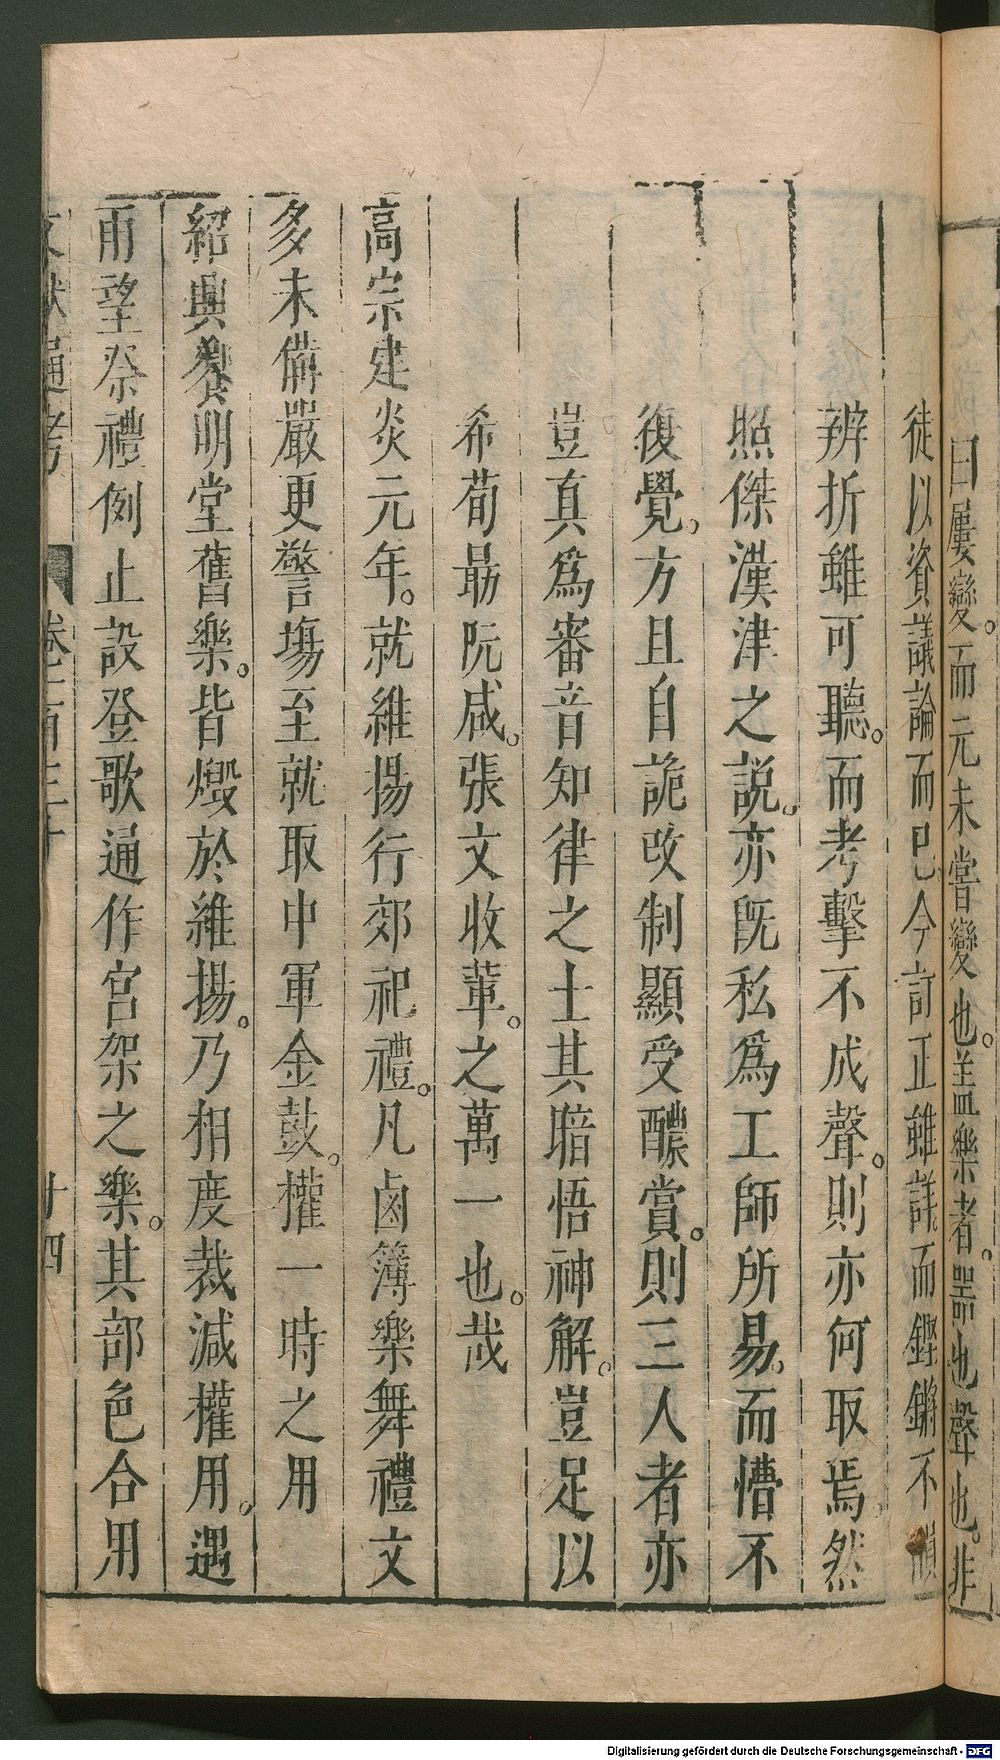 曰屢變。而元未嘗變也。蓋樂者。器也聲也。非
徒以資議論而已。今訂正雖詳而鏗鏘不韻
辨折雖可聽。而考擊不成聲。則亦何取焉。然
照傑漢津之説。亦既私爲工師所易。而懵不
復覺。方且自詭改制顯受醲賞。則三人者亦
豈真爲審音知律之士其暗悟神解。豈足以
希荀勗阮咸。張文收輩。之萬一也。哉
高宗建炎元年。就維揚行郊祀禮。凡鹵簿樂舞禮文
多未備嚴更警塲至就取中軍金鼓。權一時之用
紹興饗明堂舊樂。皆燬於維揚。乃相度裁減權用。遇
雨望祭禮例止設登歌通作宮架之樂。其部色合用
文獻通考 卷一百三十 十四
Digitalisierung gefördert durch die Deutsche Forschungsgemeinschaft - DFG